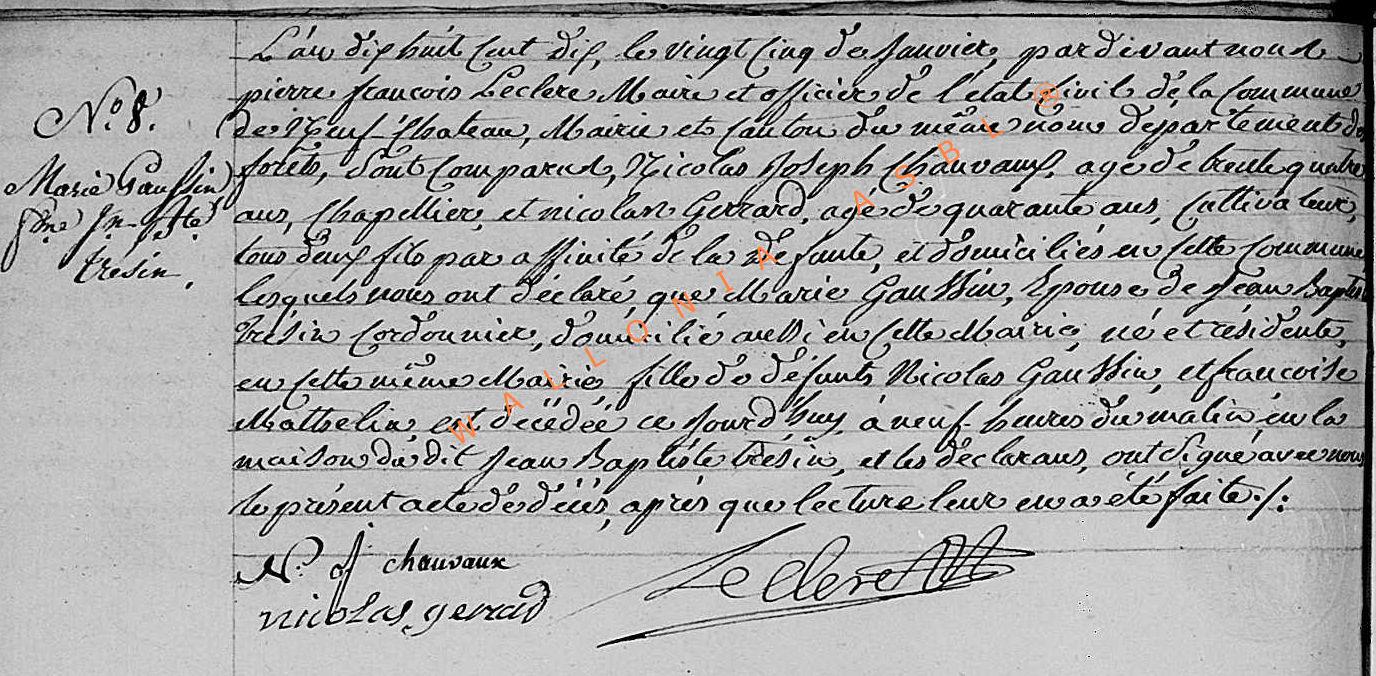 L'an dix huit cent dix, le vingt cinq de Janvier, pardevant nous
pierre françois Leclere Maire et officier de l'état civil de la Commune
de Neuf-Chateau, Mairie et Canton du même nom departement des
forêts, sont comparus, Nicolas Joseph Chauvaux, agé de trente quatre
ans, Chapellier, et nicolas Gerrard, agé de quarante ans, Cultivateur,
tous deux fils par affinité de la défunte, et domiciliés en cette Commune
lesquels nous ont déclaré que Marie Gaussin, Epouse de Jean Baptiste
trésin Cordonnier, domicilié aussi en cette Mairie, né et résidente,
en cette même Mairie fille de défunts Nicolas Gaussin, et françoise
Mathelin, est décédée ce jourd'huy, à neuf heures du matin en la
maison du dit Jean Baptiste trésin, et les déclarans, ont signé avec nous
le présent acte de décès, après que lecture leur en a été faite ./.
N.º 8.
Marie Gaussin
fme Jn. Bte
trésin.
N. J chauvaux
nicolas gerrad
Leclere
WALLONIA ASBL ®